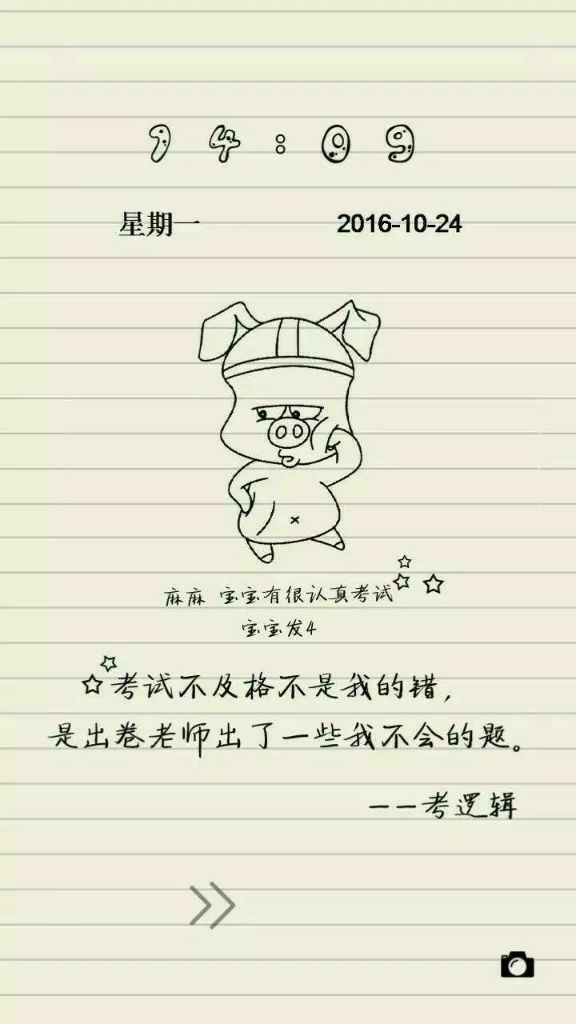 14:09
星期一 2016-10-24
麻麻 宝宝有很认真考试
宝宝发4
考试不及格不是我的错，
是出卷老师出了一些我不会的题。
——考逻辑